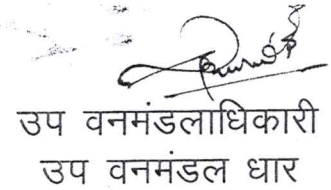 उप वनमंडलाधिकारी
उप वनमंडल धार